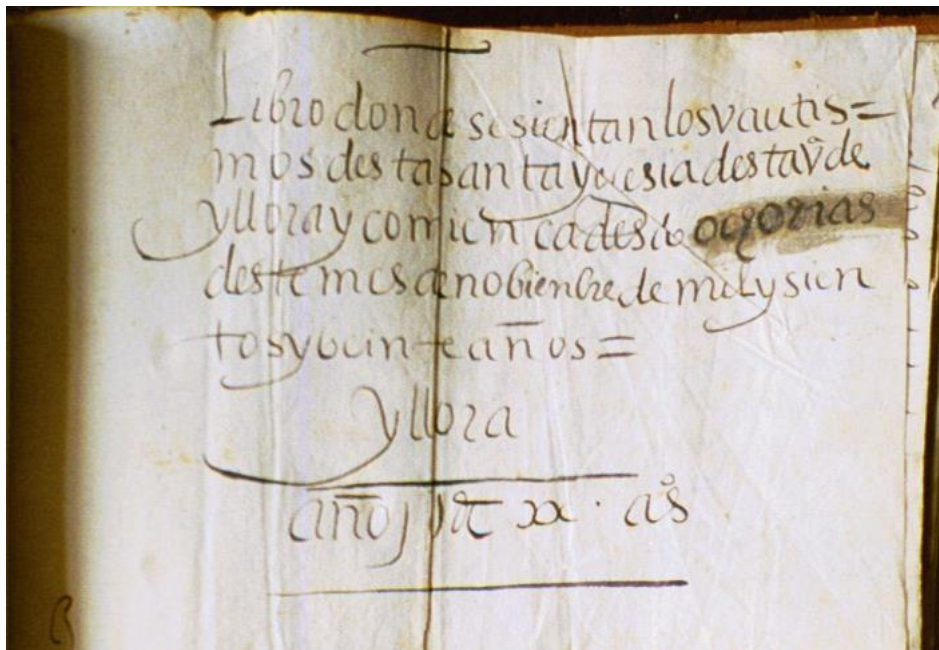 Libro donde se sientan los vautis=
mos desta santa yglesia desta vª de
yllora y comiença desde ocho dias
deste mes de nobienbre de mil y seicn
tos y veinte años =
yllora
año j VIC xx · aºs